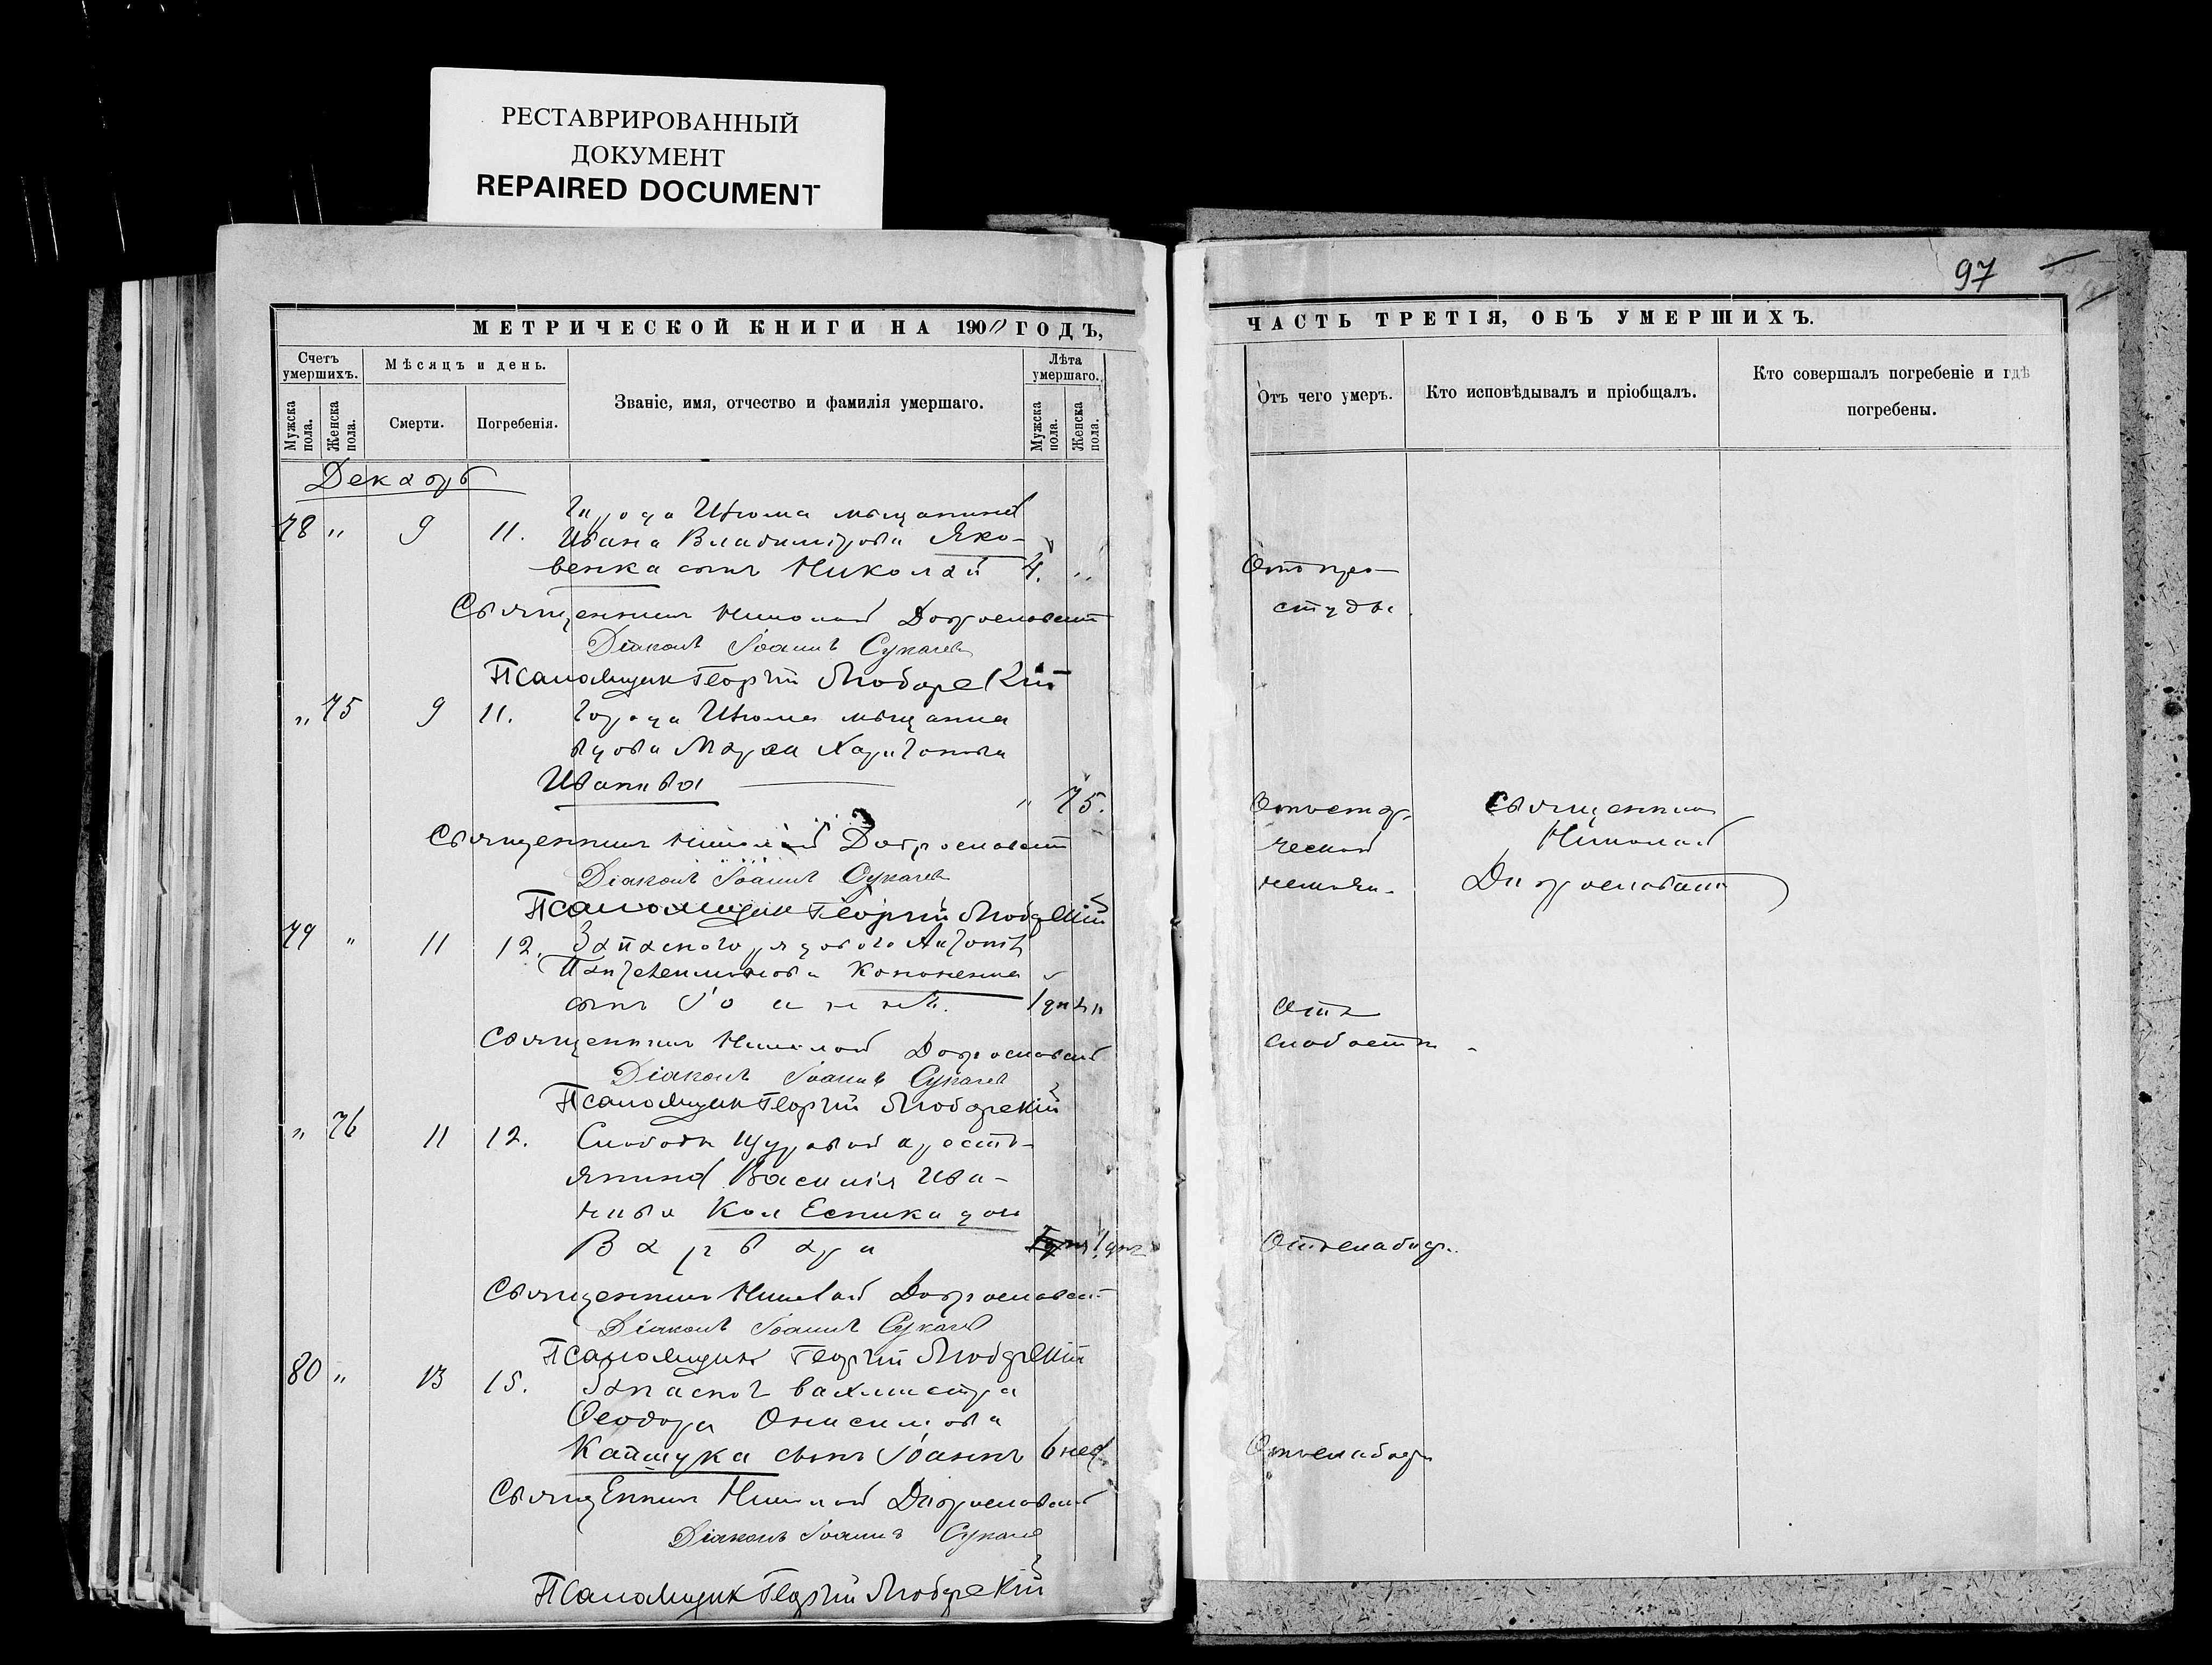 РЕСТАВРИРОВАННЫЙ
ДОКУМЕНТ
REPAIRED DOCUMENT
МЕТРИЧЕСКОЙ КНИГИ НА 1900 ГОДЪ,
Счетъ умершихъ.
Мужска пола.
Женска пола.
Мѣсяцъ и день.
Смерти.
Погребенія.
Званіе, имя, отчество и фамилія умершаго.
Лѣта умершаго.
Мужска пола.
Женска пола.
Декабрь
78 " 9 11. Города Изюма мѣщанина
Ивана Владимірова Яко-
венка сынъ Николай 4. "
Священникъ Николай Доброславскій
Діаконъ Іоаннъ Сукачев
Псаломщик Георгій Любарскій
" 75 9 11. Города Изюма мѣщанка
вдова Марѳа Харитонова
Иванова " 75.
Священникъ Николай Доброславскій
Діаконъ Іоаннъ Сукачев
Псаломщик Георгій Любарскій
79 " 11 12. Запаснаго рядового Антонія
Пантелеимонова Кононенка
сынъ Іоаннъ. 1 дня "
Священникъ Николай Доброславскій
Діаконъ Іоаннъ Сукачев
Псаломщик Георгій Любарскій
" 76 11 12. Слободы Щуровой кресть-
янина Василія Ива-
нова Колесника дочь
Варвара 1 дня
Священникъ Николай Доброславскій
Діаконъ Іоаннъ Сукачев
Псаломщик Георгій Любарскій
80 " 13 15. Запасног вахмистра
Ѳеодора Онисимова
Кашука сынъ Іоаннъ 6 нед.
Священникъ Николай Доброславскій
Діаконъ Іоаннъ Сукачев
Псаломщик Георгій Любарскій
97
ЧАСТЬ ТРЕТІЯ, ОБЪ УМЕРШИХЪ.
Отъ чего умеръ.
Кто исповѣдывалъ и пріобщалъ.
Кто совершалъ погребеніе и гдѣ
погребены.
Отъ про-
студы.
Отъ стар-
ческой
Священник
Николай
Доброславскій
Отъ
слабости
Отъ слабости
Отъ слабости